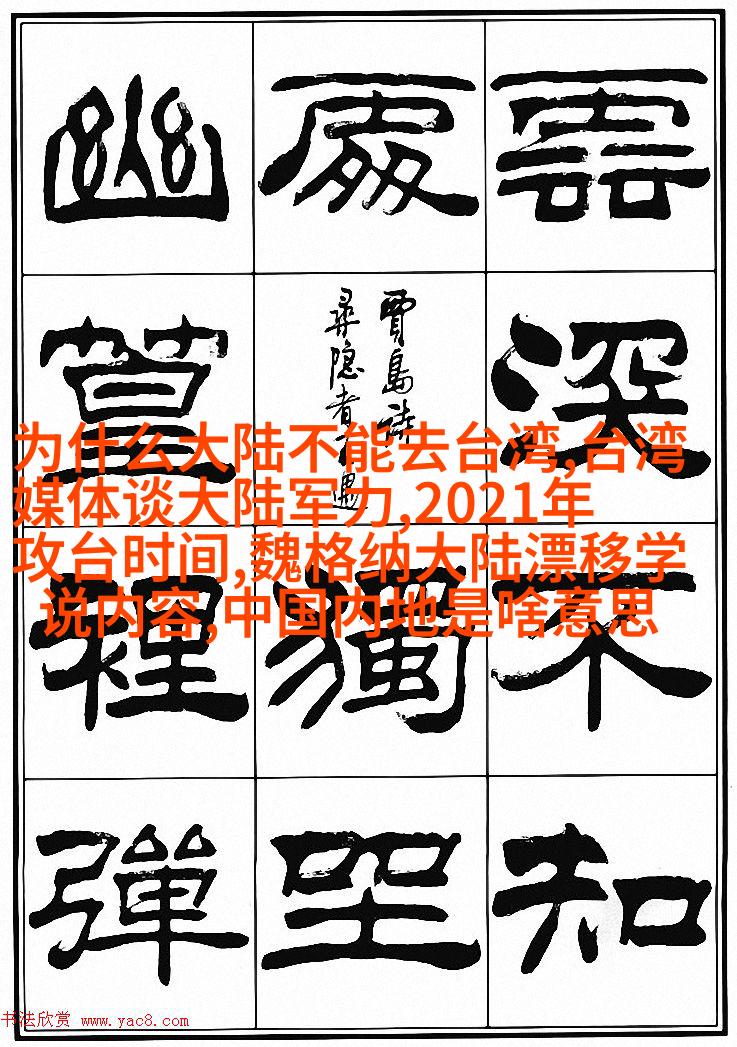 雲
深
不
知
處
賈島詩
尋隱者不遇
獨
坐
幽
篁
裡
彈
为什么大陆不能去台湾,台湾
媒体谈大陆军力,2021年
攻台时间,魏格纳大陆漂移学
说内容,中国内地是啥意思
书法欣赏 www.yac8.com